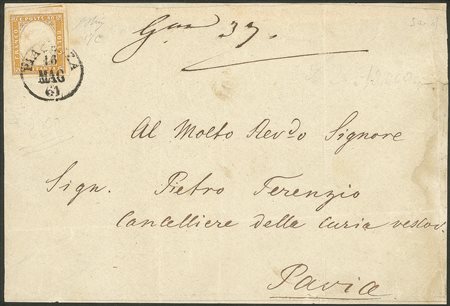 Gua 37.
PIACENZA
16
MAG
61
Al Molto Revdo Signore
Sign. Pietro Terenzio
Cancelliere della Curia vescov.
Pavia